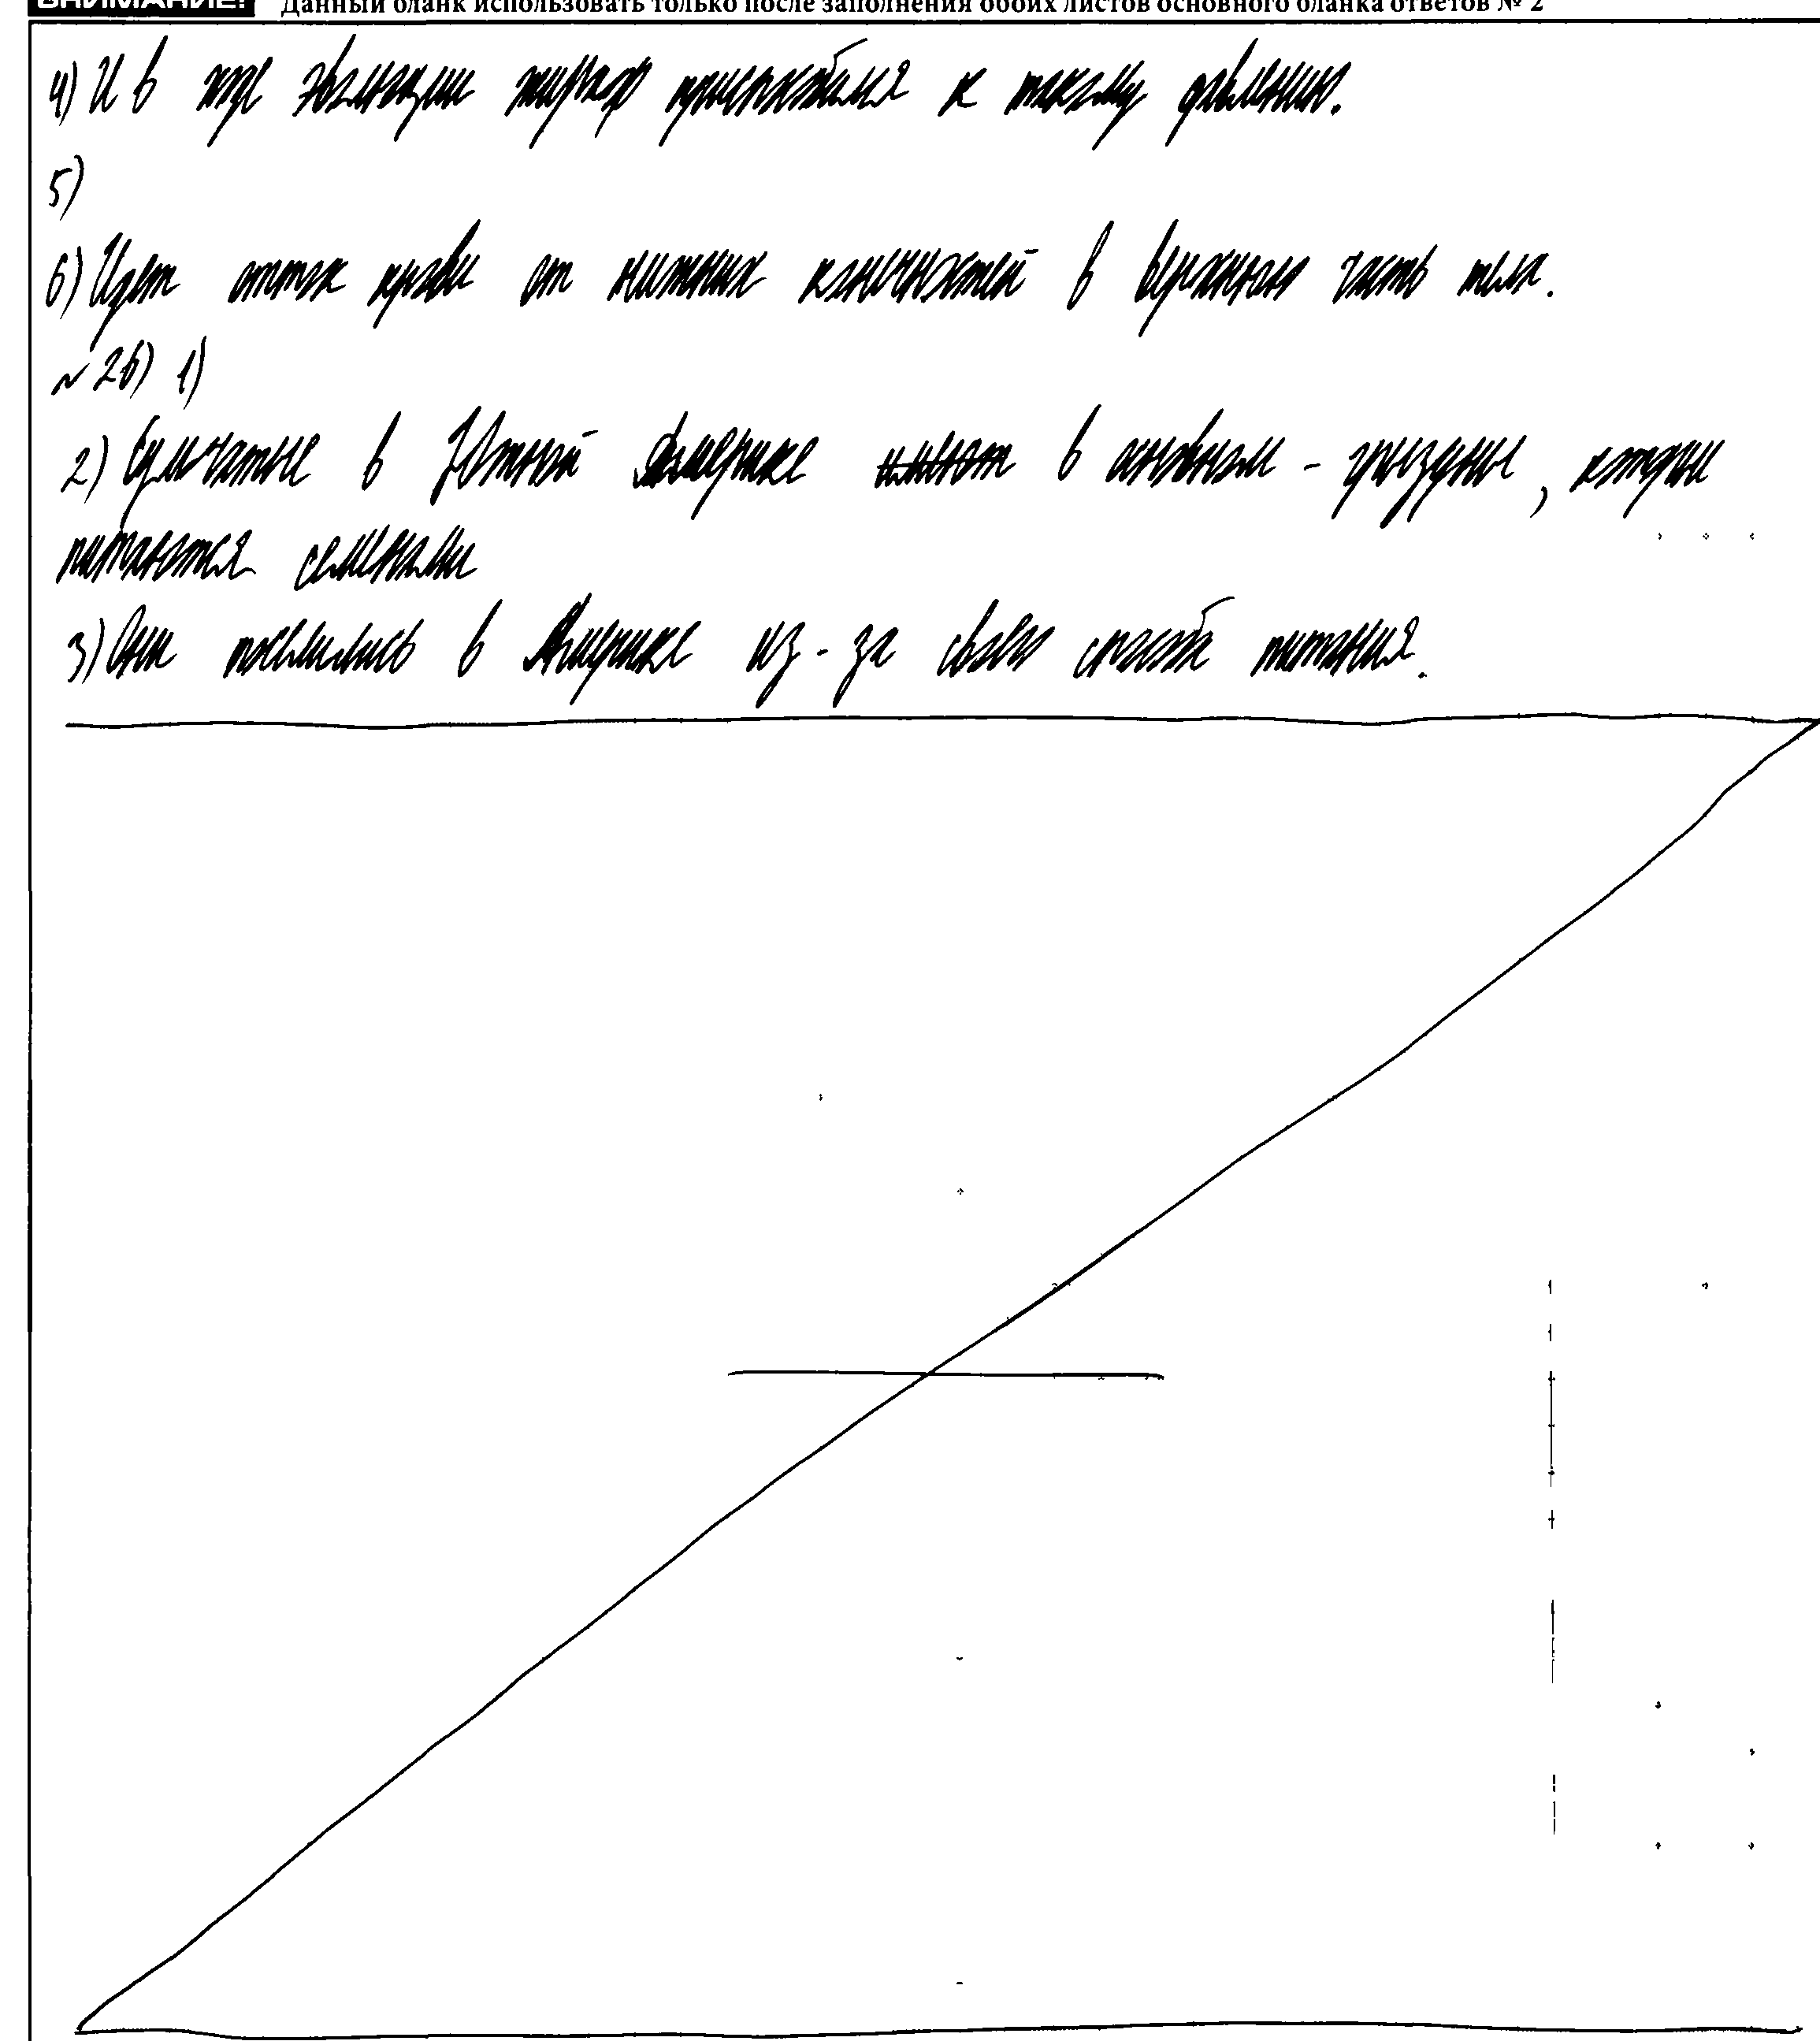 ВНИМАНИЕ! Данный бланк использовать только после заполнения обоих листов основного бланка ответов № 2
4) И в ходе эволюции жираф приспособился к такому давлению.
5)
6) Идет отток крови от нижних конечностей в верхнюю часть тела.
~ 26) 1)
2) Сумчатые в Южной Америке имеют в основном - грызуны, которы
питаются семенами
3) Они появились в Америке из-за своего способа питания.